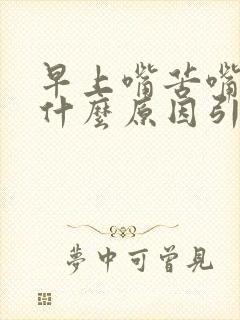 早上嘴苦嘴
什麼原因引
夢中可曾見